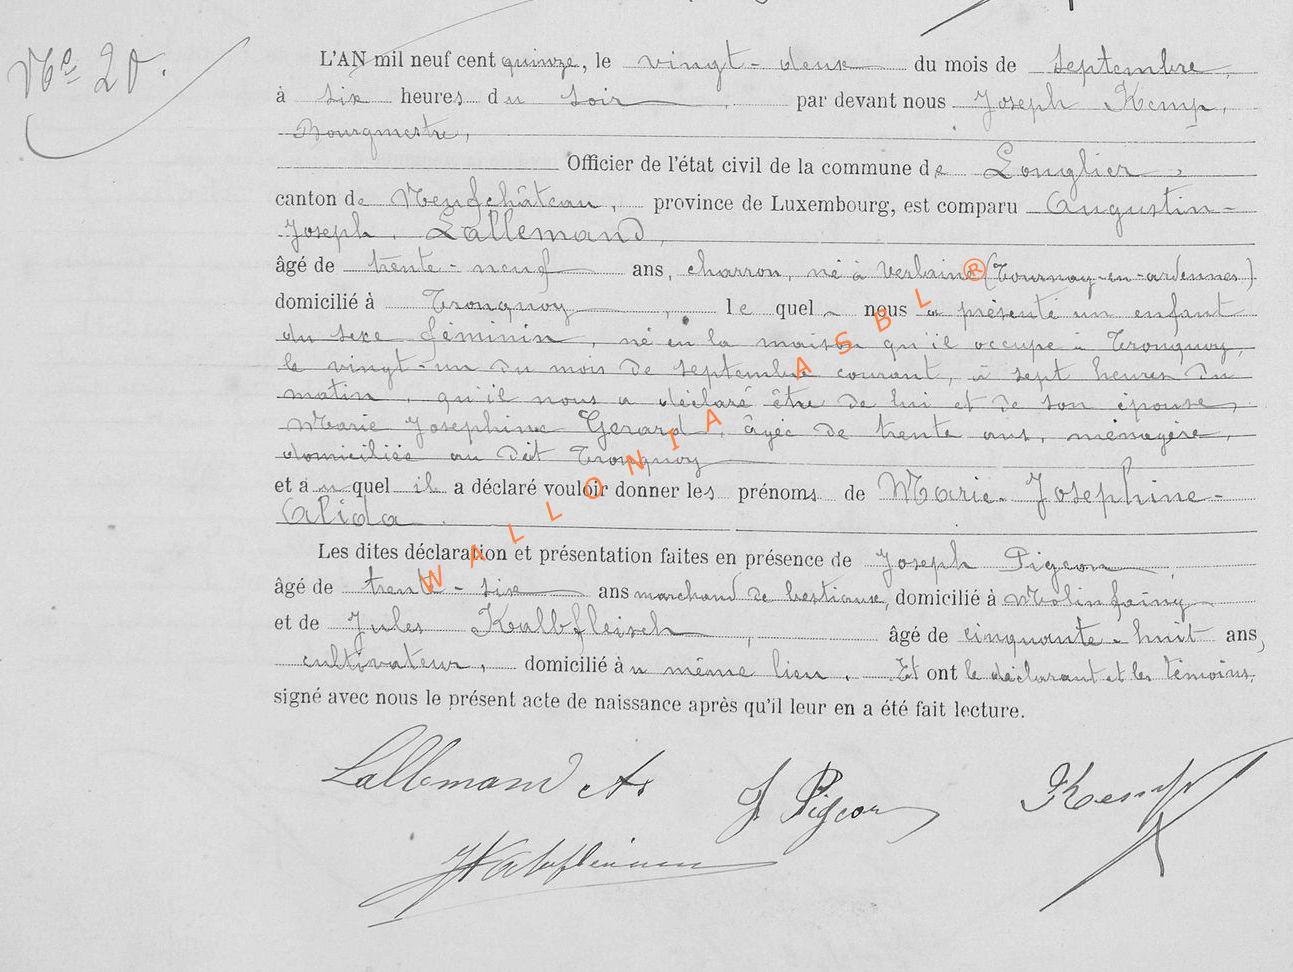 Nº 20.
L'AN mil neuf cent quinze, le vingt-deux du mois de septembre,
à six heures du soir, par devant nous Joseph Kemp,
Bourgmestre,
Officier de l'état civil de la commune de Longlier,
canton de Neufchâteau, province de Luxembourg, est comparu Augustin-
Joseph Lallemand,
âgé de trente-neuf ans, charron, né à Verlaine (Tournay-en-ardennes)
domicilié à Tronquoy, le quel nous a présenté un enfant
du sexe féminin, né en la maison qu'il occupe à Tronquoy,
le vingt-un du mois de septembre courant, à sept heures du
matin, qu'il nous a déclaré être de lui et de son épouse,
Marie Josephine Gerard, âgée de trente ans, ménagère,
domiciliée au dit Tronquoy
et au quel il a déclaré vouloir donner les prénoms de Marie-Josephine-
Alida.
Les dites déclaration et présentation faites en présence de Joseph Pigeon,
âgé de trente-six ans marchand de bestiaux, domicilié à Molinfaing
et de Jules Kalbfleisch, âgé de cinquante-huit ans,
cultivateur, domicilié au même lieu. Et ont le déclarant et les témoins,
signé avec nous le présent acte de naissance après qu'il leur en a été fait lecture.
Lallemand As J Pigeon Kemp
WALLONIA ASBL ®